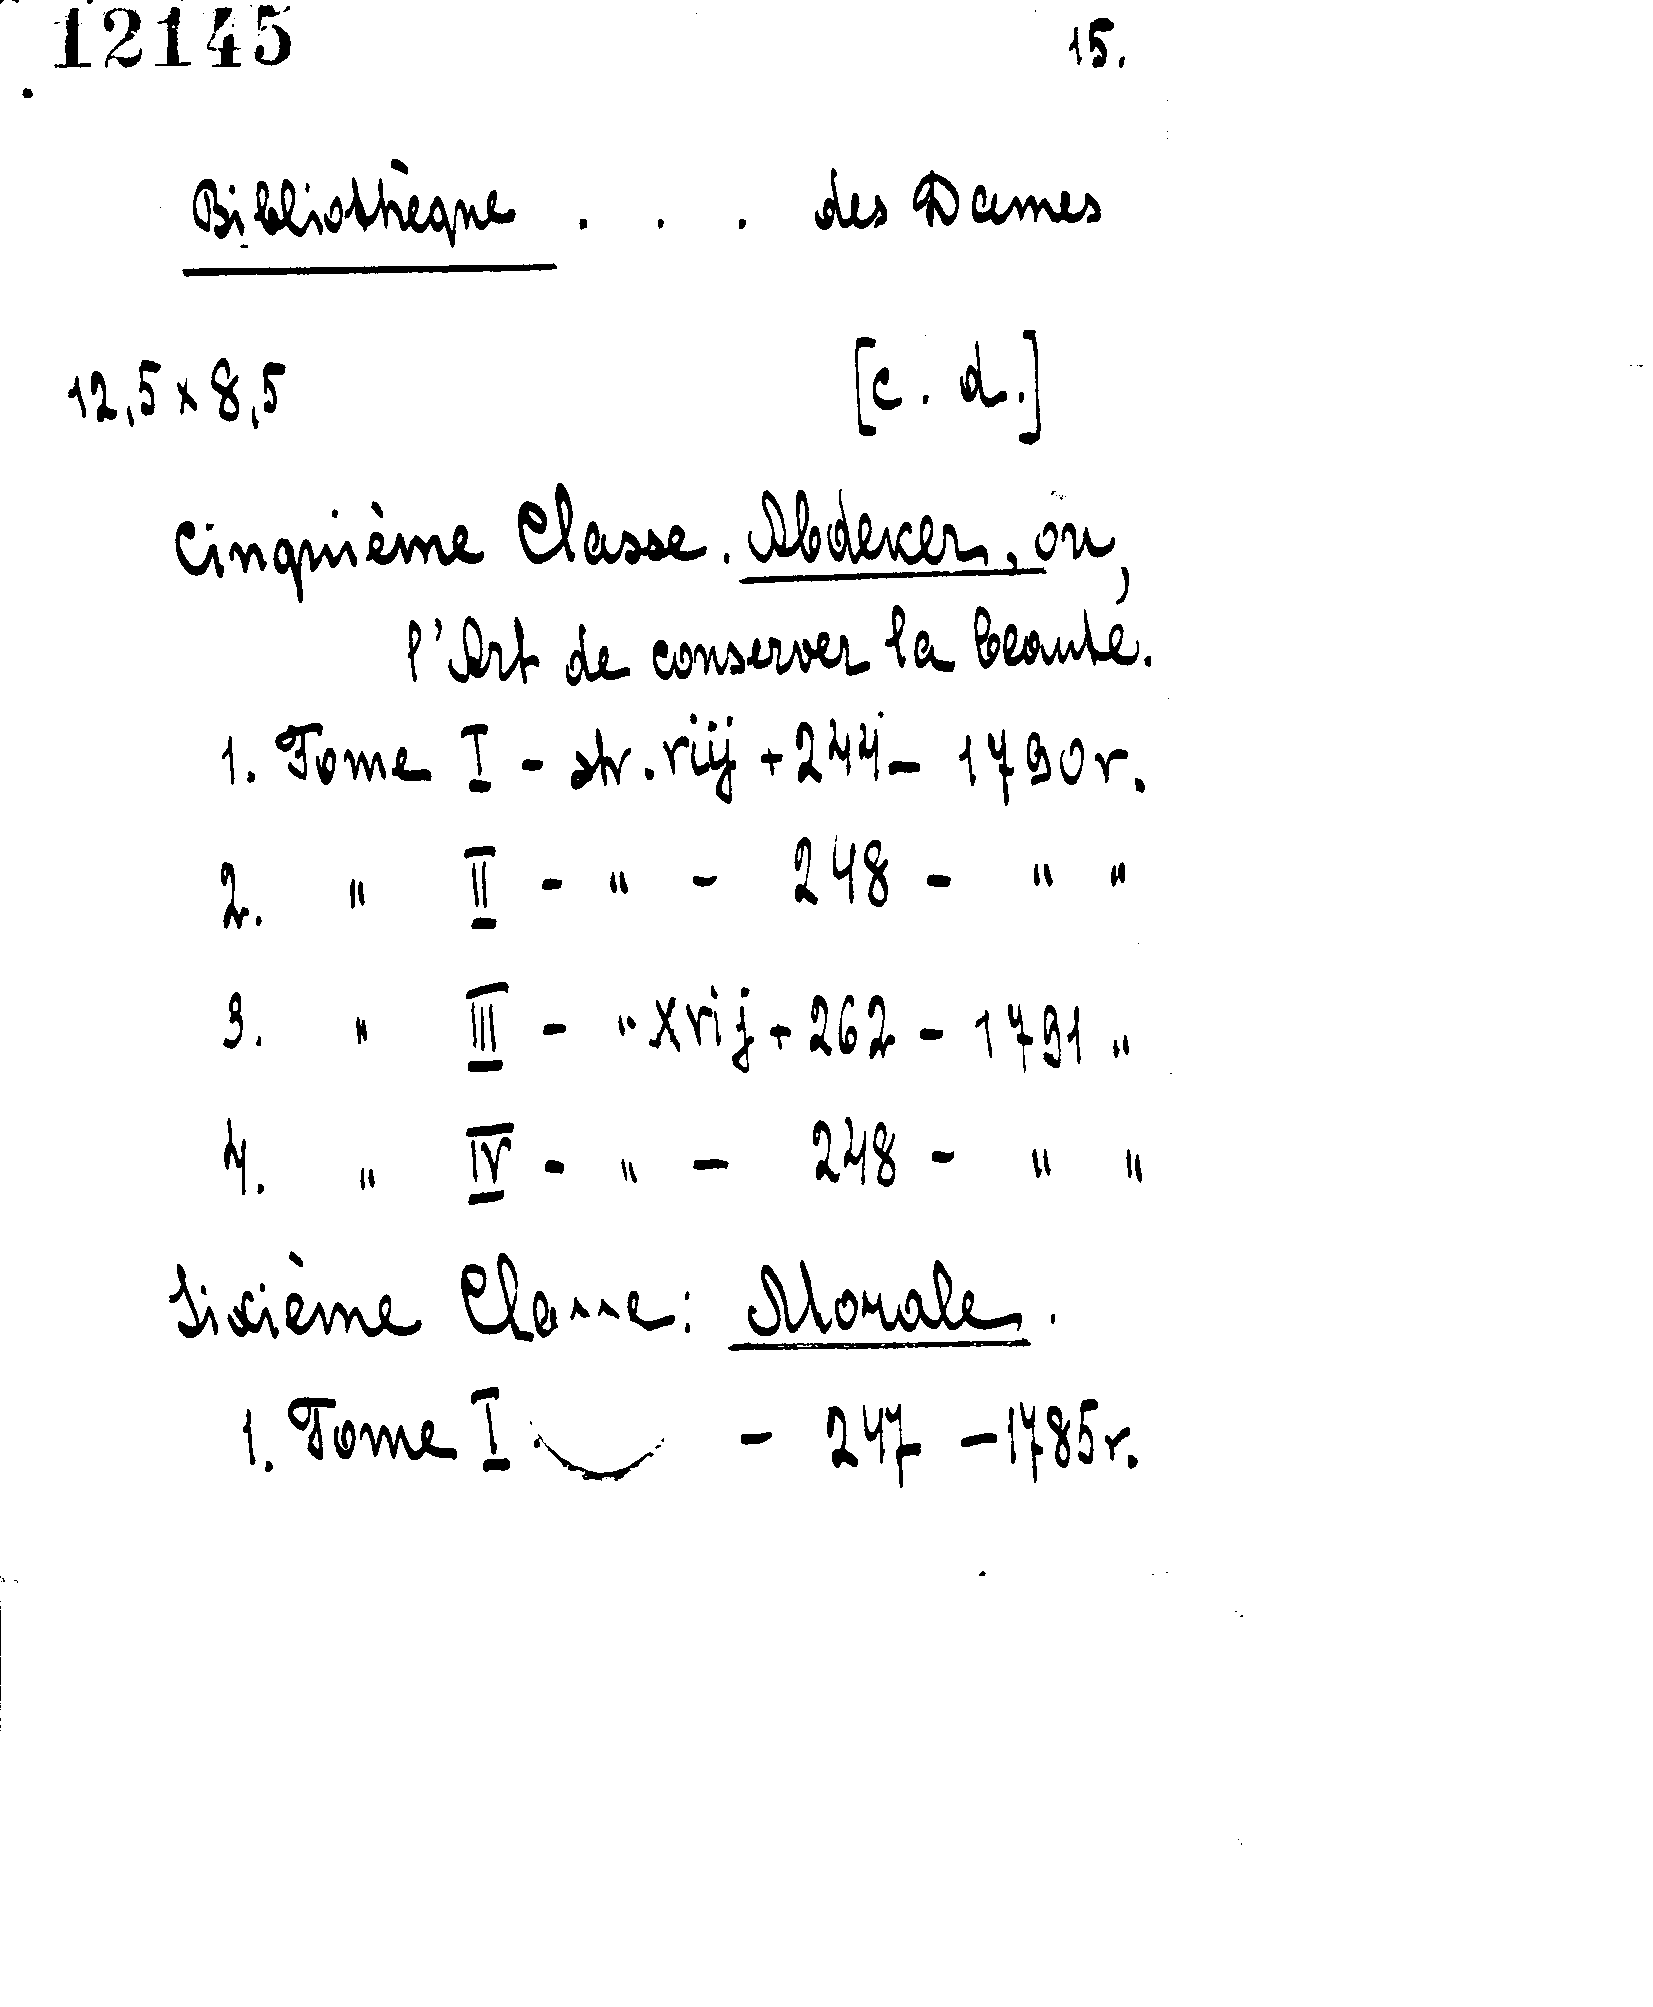 12145 15.
Bibliothèque . . . des Dames
12,5 x 8,5 [c. d.]
Cinquième Classe. Abdeker, ou,
l'Art de conserver la beauté.
1. Tome I - str. viij + 244 - 1790 r.
2. " II - " - 248 - " "
3. " III - " xvij + 262 - 1791 "
4. " IV - " - 248 - " "
Sixième Classe: Morale.
1. Tome I - 247 - 1785 r.